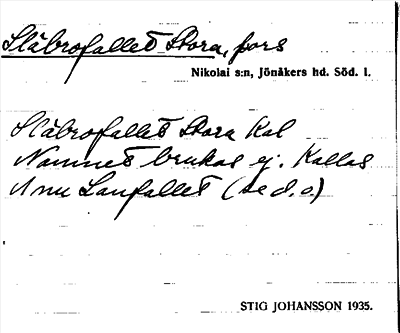 Släbrofallet Stora, fors
Nikolai s:n, Jönåkers hd. Söd. l.
Släbrofallet Stora Kal
Namnet brukas ej. Kallas
Laxfallet (se d.o.)
STIG JOHANSSON 1935.